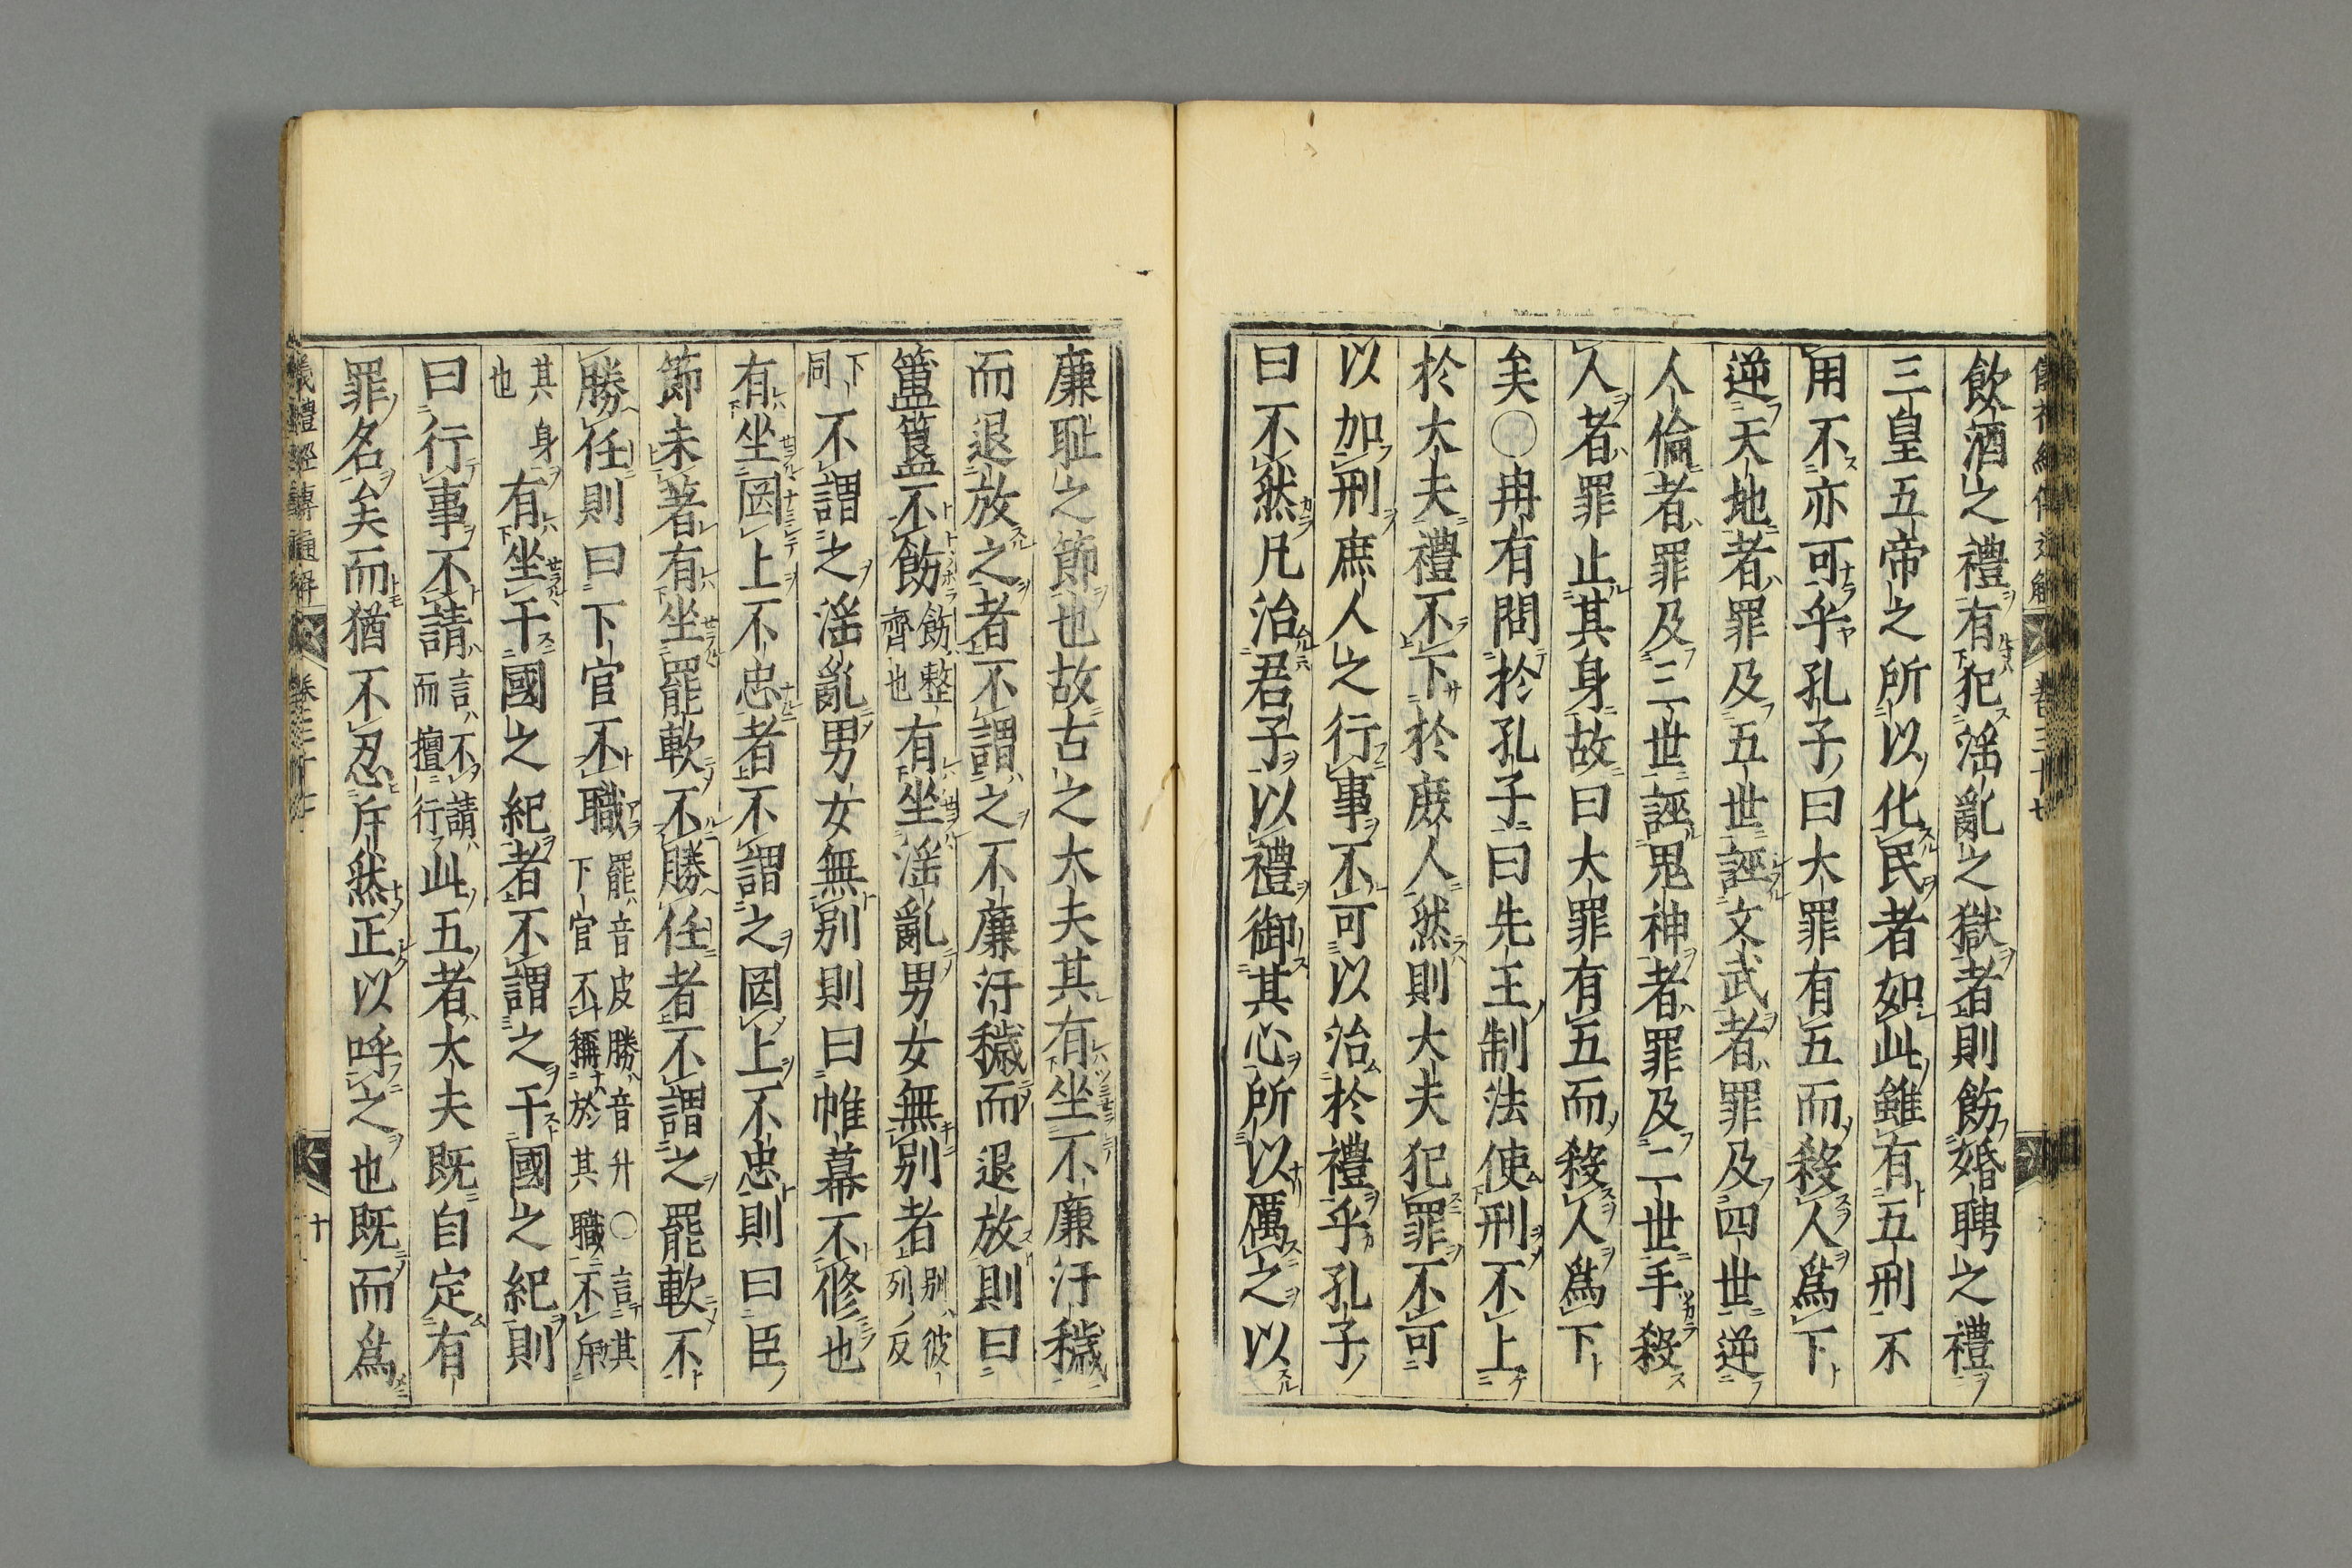 飲酒之禮有犯淫亂之獄者則飭婚聘之禮
三皇五帝之所以化民者如此雖有五刑不
用不亦可乎孔子曰大罪有五而殺人爲下
逆天地者罪及五世誣文武者罪及四世逆
人倫者罪及三世誣鬼神者罪及二世手殺
人者罪止其身故曰大罪有五而殺人爲下
矣○冉有問於孔子曰先王制法使刑不上
於大夫禮不下於庶人然則大夫犯罪不可
以加刑庶人之行事不可以治於禮乎孔子
曰不然凡治君子以禮御其心所以厲之以
廉恥之節也故古之大夫其有坐不廉汙穢
而退放之者不謂之不廉汙穢而退放則曰
簠簋不飭飭整齊也有坐淫亂男女無別者別彼列反
下同不謂之淫亂男女無別則曰帷幕不修也
有坐罔上不忠者不謂之罔上不忠則曰臣
節未著有坐罷軟不勝任者不謂之罷軟不
勝任則曰下官不職罷音皮勝音升○言其下官不稱於其職不斥
其身也有坐干國之紀者不謂之干國之紀則
曰行事不請言不請而擅行此五者大夫既自定有
罪名矣而猶不忍斥然正以呼之也既而爲
儀禮經傳通解 卷三十七 十